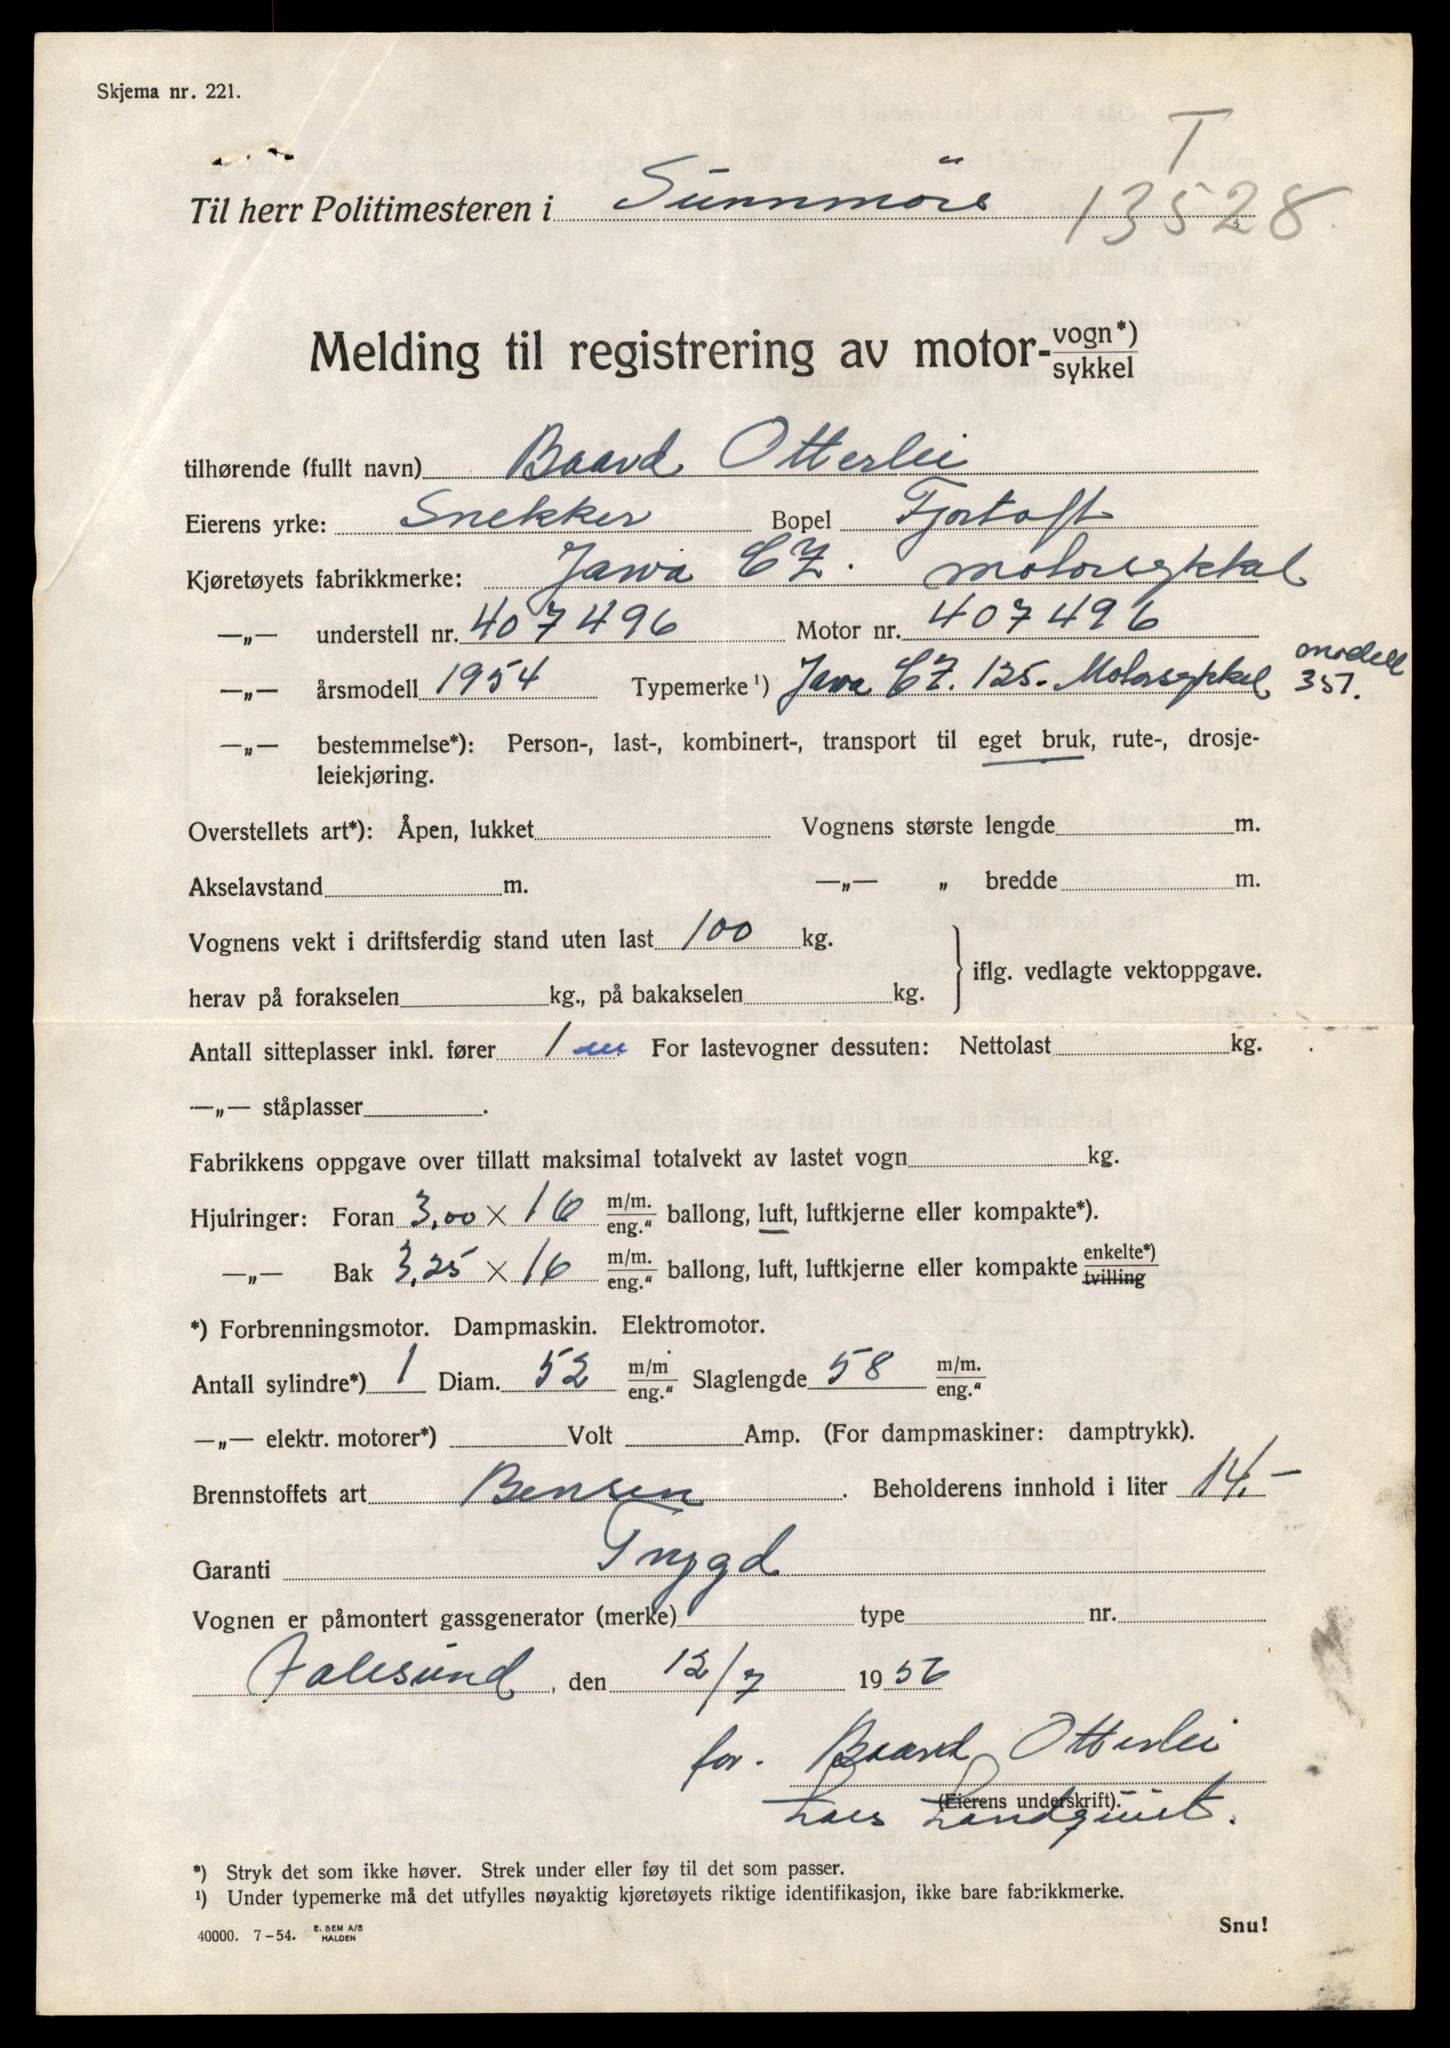 Skjema nr. 221.
T
Til herr Politimesteren i Sunnmöre 13528.
Melding til registrering av motor- vogn*) sykkel
tilhørende (fullt navn) Baard Otterlei
Eierens yrke: Snekker Bopel Fjortoft
Kjøretøyets fabrikkmerke: Jawa CZ. motorsykkel
—„— understell nr. 407496 Motor nr. 407496
—„— årsmodell 1954 Typemerke ¹) Jawa CZ. 125. Motorsykkel modell 351.
—„— bestemmelse*): Person-, last-, kombinert-, transport til eget bruk, rute-, drosje-
leiekjøring.
Overstellets art*): Åpen, lukket Vognens største lengde m.
Akselavstand m. —„— „ bredde m.
Vognens vekt i driftsferdig stand uten last 100 kg.
iflg. vedlagte vektoppgave.
herav på forakselen kg., på bakakselen kg.
Antall sitteplasser inkl. fører 1 en For lastevogner dessuten: Nettolast kg.
—„— ståplasser .
Fabrikkens oppgave over tillatt maksimal totalvekt av lastet vogn kg.
Hjulringer: Foran 3,00 × 16 m/m. eng." ballong, luft, luftkjerne eller kompakte*).
—„— Bak 3,25 × 16 m/m. eng." ballong, luft, luftkjerne eller kompakte enkelte*) tvilling
*) Forbrenningsmotor. Dampmaskin. Elektromotor.
Antall sylindre*) 1 Diam. 52 m/m eng." Slaglengde 58 m/m. eng."
—„— elektr. motorer*) Volt Amp. (For dampmaskiner: damptrykk).
Brennstoffets art Bensin . Beholderens innhold i liter 14.-
Garanti Trygd
Vognen er påmontert gassgenerator (merke) type nr.
Aalesund, den 12/7 1956
for. Baard Otterlei
(Eierens underskrift).
Lars Landquist.
*) Stryk det som ikke høver. Strek under eller føy til det som passer.
¹) Under typemerke må det utfylles nøyaktig kjøretøyets riktige identifikasjon, ikke bare fabrikkmerke.
40000. 7-54. E. SEM A/S HALDEN
Snu!